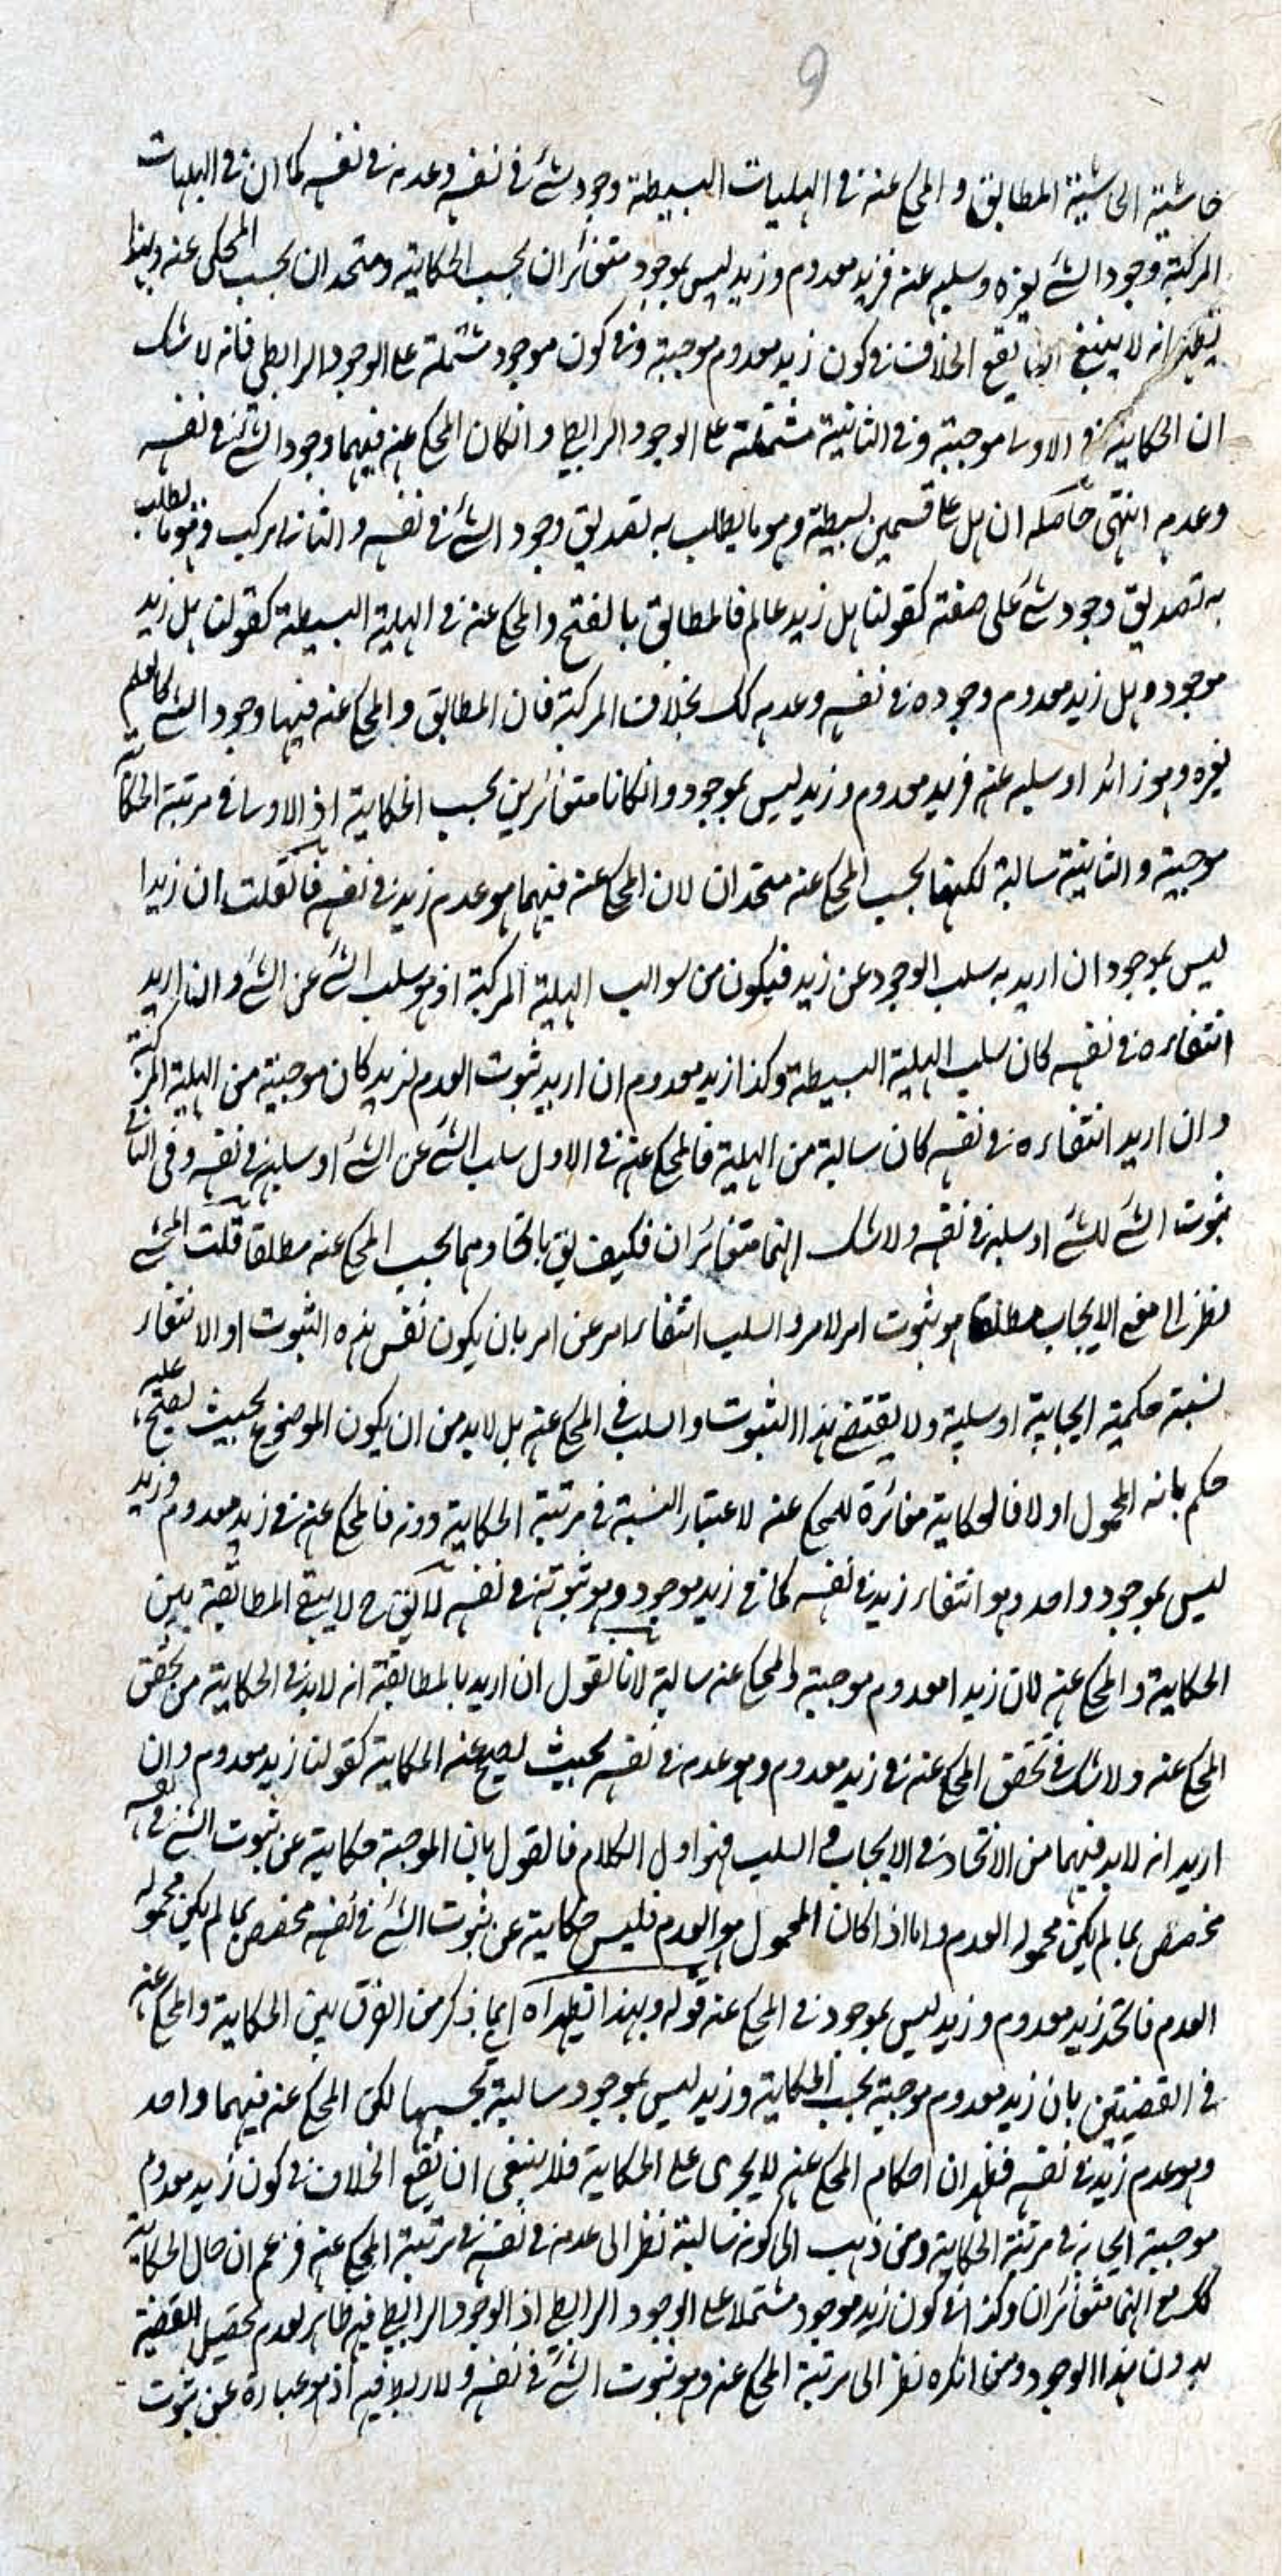 9
حاشية الحاشية المطابق و المحكى عنه فى الهليات البسيطة وجود شئ فى نفسه وعدمه فى نفسه كما ان فى الهليات
المركبة وجود الشئ لغيره وسلبه عنه فزيد معدوم وزيد ليس بموجود متغائران بحسب الحكاية ومتحدان بحسب المحكى عنه وبهذا
يظهر انه لا ينبغى ان يقع الخلاف فى كون زيد معدوم موجبة وفى كون موجود مشتملة على الوجود الرابطى فانه لا شك
ان الحكاية فى الاولى موجبة وفى الثانية مشتملة على الوجود الرابطى وانكان المحكى عنه فيهما وجود الشئ فى نفسه
وعدمه انتهى حاصله ان هل على قسمين بسيطة وهو ما يطلب به تصديق وجود الشئ فى نفسه والثانى مركب وهو ما يطلب
به تصديق وجود شئ على صفته كقولنا هل زيد عالم فالمطابق بالفتح والمحكى عنه فى الهلية البسيطة كقولنا هل زيد
موجود وهل زيد معدوم وجوده فى نفسه وعدمه كك بخلاف المركبة فان المطابق والمحكى عنه فيها وجود الشئ كالعلم
لغيره وهو زائد او سلبه عنه فزيد معدوم وزيد ليس بموجود وانكانا متغائرين بحسب الحكاية اذ الاولى فى مرتبة الحكاية
موجبة والثانية سالبة لكنهما بحسب المحكى عنه متحدان لان المحكى عنه فيهما هو عدم زيد فى نفسه فان قلت ان زيدا
ليس بموجود ان اريد به سلب الوجود عن زيد فيكون من سوالب الهلية المركبة اذ هو سلب الشئ عن الشئ وان اريد
انتفاءه فى نفسه كان سلب الهلية البسيطة وكذا زيد معدوم ان اريد ثبوت العدم لزيد كان موجبة من الهلية المركبة
وان اريد انتفاءه فى نفسه كان سالبة من الهلية فالمحكى عنه فى الاول سلب الشئ عن الشئ او سلبه فى نفسه وفى الثانى
ثبوت الشئ للشئ او سلبه فى نفسه ولا شك انهما متغائران فكيف يق باتحادهما بحسب المحكى عنه مطلقا قلت المحشى
نظر الى معنى الايجاب مطلقا هو ثبوت امر لامر والسلب انتفاء امر عن امر بان يكون نفس هذه الثبوت او الانتفاء
نسبة حكمية ايجابية او سلبية ولا يقتضى هذا الثبوت والسلب فى المحكى عنه بل لابد من ان يكون الموضوع بحيث يصح عليه
حكم بانه المحمول او لا فالحكاية مغائرة للمحكى عنه لاعتبار النسبة فى مرتبة الحكاية دونه فالمحكى عنه فى زيد معدوم وزيد
ليس بموجود واحد وهو انتفاء زيد فى نفسه كما فى زيد موجود وهو ثبوته فى نفسه لا يق ح لا يبقى المطابقة بين
الحكاية والمحكى عنه لان زيدا معدوم موجبة والمحكى عنه سالبة لانا نقول ان اريد بالمطابقة انه لابد فى الحكاية من تحقق
المحكى عنه ولا شك فى تحقق المحكى عنه فى زيد معدوم وهو عدمه فى نفسه بحيث يصح عنه الحكاية كقولنا زيد معدوم وان
اريد انه لابد فيهما من الاتحاد فى الايجاب والسلب فهو اول الكلام فالقول بان الموجبة حكاية عن ثبوت الشئ فى نفسه
مخصص بما لم يكن محموله العدم واما اذا كان المحمول هو العدم فليس حكاية عن ثبوت الشئ فى نفسه مخصص بما لم يكن محموله
العدم فاتحد زيد معدوم وزيد ليس بموجود فى المحكى عنه قوله وبهذا يظهر اه اى بما ذكر من الفرق بين الحكاية والمحكى عنه
فى القضيتين بان زيد معدوم موجبة بحسب الحكاية وزيد ليس بموجود سالبة بحسبها لكن المحكى عنه فيهما واحد
وهو عدم زيد فى نفسه فظهر ان احكام المحكى عنه لا يجرى على الحكاية فلا ينبغى ان يقع الخلاف فى كون زيد معدوم
موجبة ايجابه فى مرتبة الحكاية ومن ذهب الى كونه سالبة نظر الى عدمه فى نفسه فى مرتبة المحكى عنه فزعم ان حال الحكاية
كك مع انهما متغائران وكذا فى كون زيد موجود مشتملا على الوجود الرابطى اذ الوجود الرابطى فيه ظاهر لعدم تحصيل القضية
بدون هذا الوجود ومن انكره نظر الى مرتبة المحكى عنه وهو ثبوت الشئ فى نفسه ولا ربط فيه اذ هو عبارة عن ثبوت